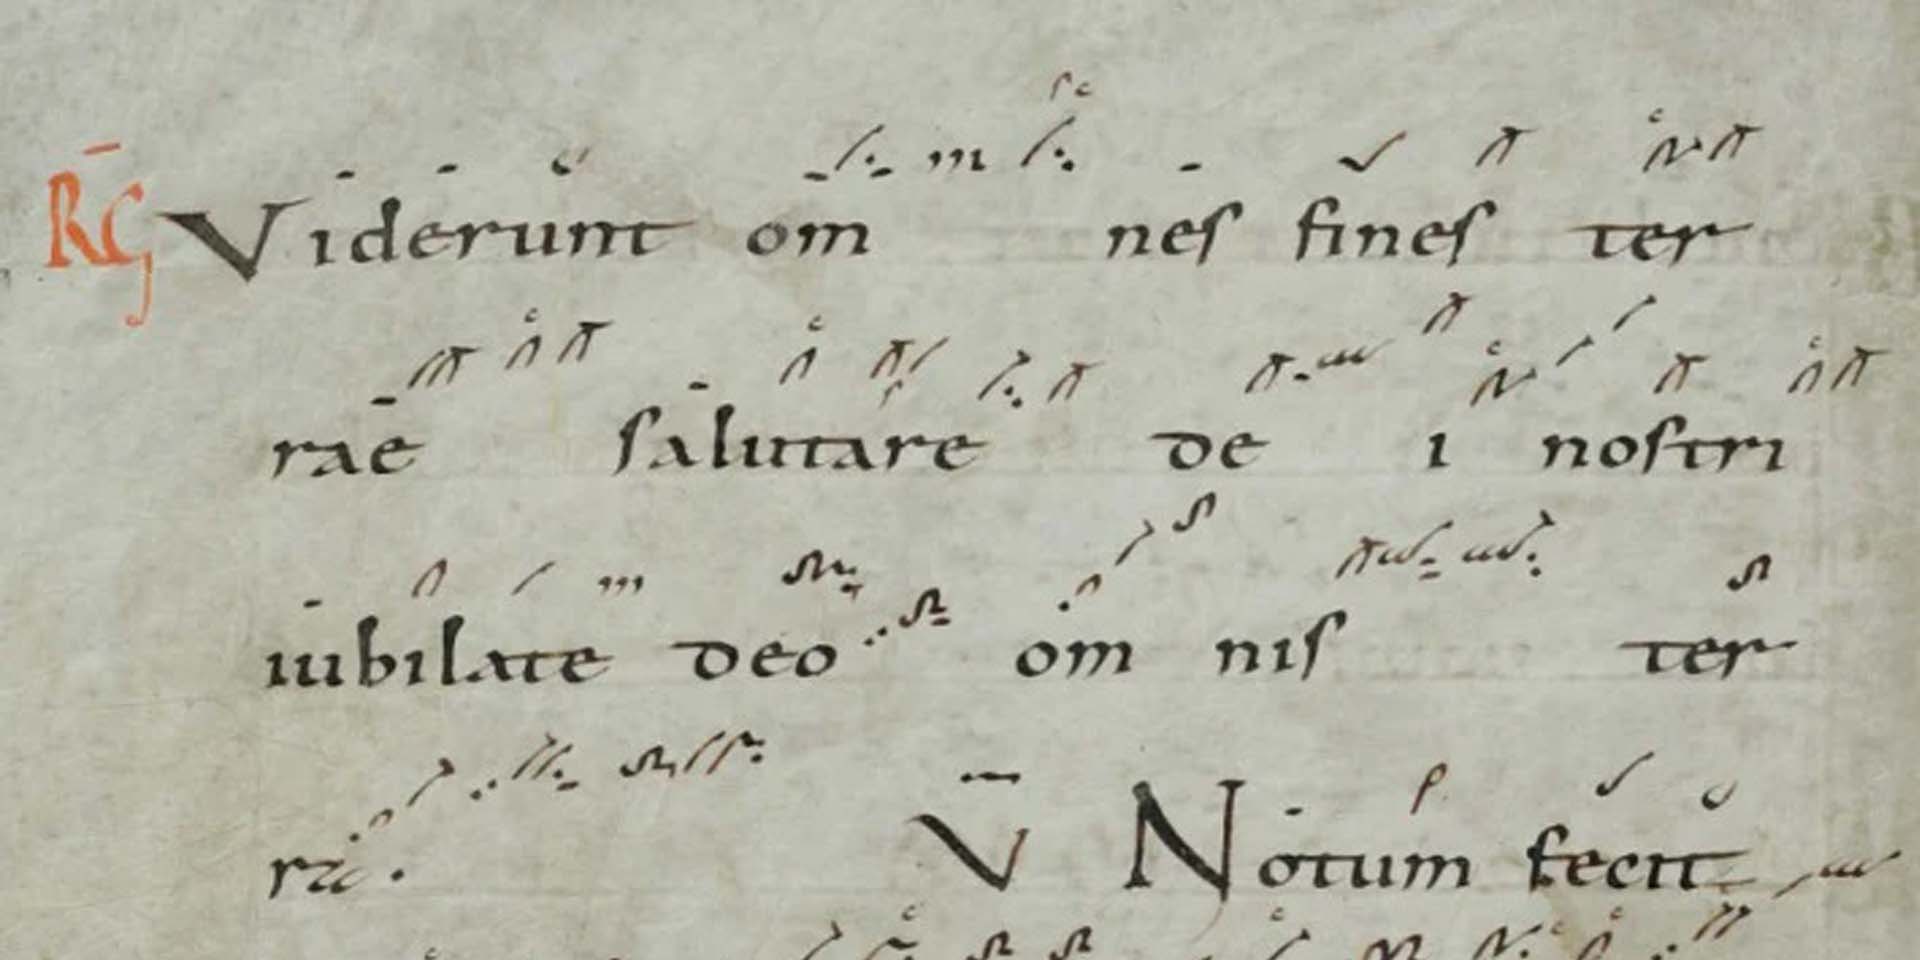 RG Viderunt om nes fines ter
rae salutare de i nostri
iubilate deo om nis ter
ra.   V Notum fecit